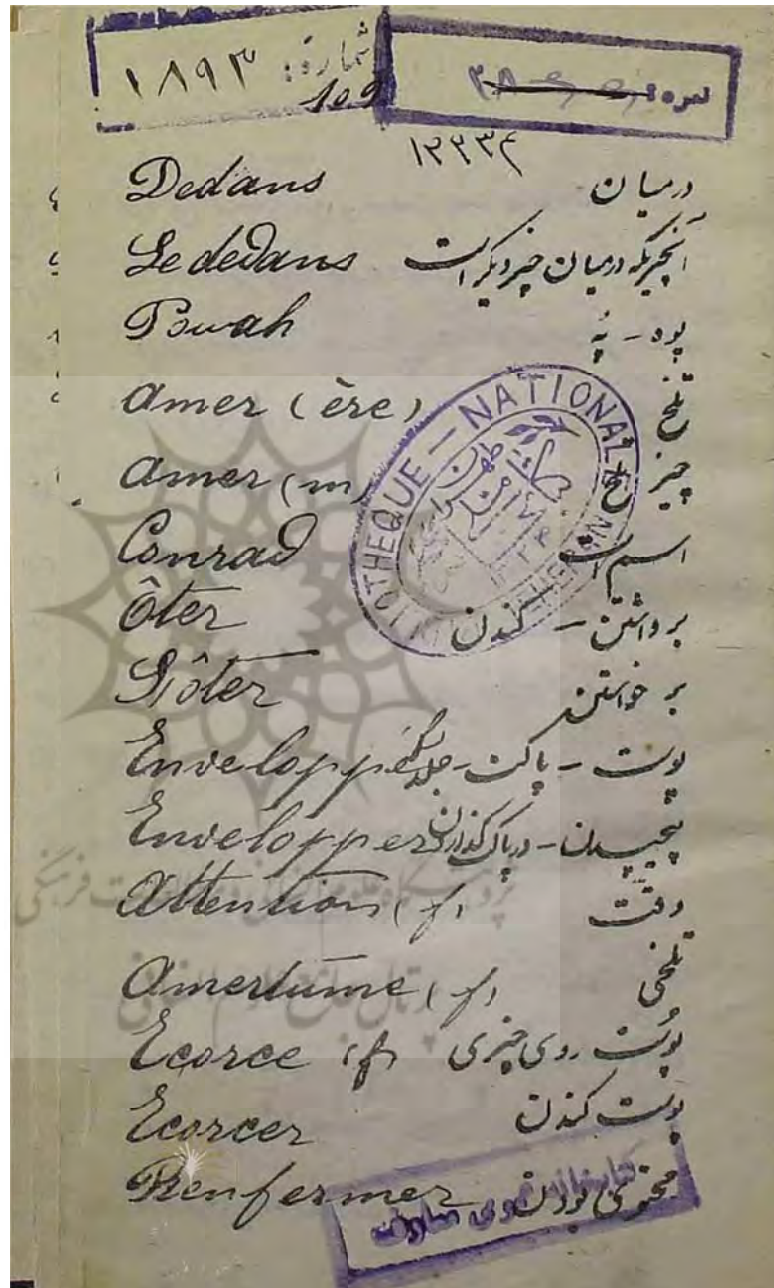 شمارة: ۱۸۹۳
109
نمره
۱۲۳۳۴
Dedans درمیان
Le dedans آنچیزیکه درمیان چیز دیگر است
Pouah پوه - پُه
Amer (ère) تلخ
Amer (m) چیز تلخ
Conrad اسم است
Ôter برداشتن - کندن
S'ôter برخواستن
Enveloppe پوست - پاکت - جلد
Envelopper پیچیدن - در پاکت گذاردن
Attention (f) دقّت
Amertume (f) تلخی
Ecorce (f) پوست روی چیزی
Ecorcer پوست کندن
Renfermer محتوی بودن
BIBLIOTHEQUE - NATIONALE TEHERAN